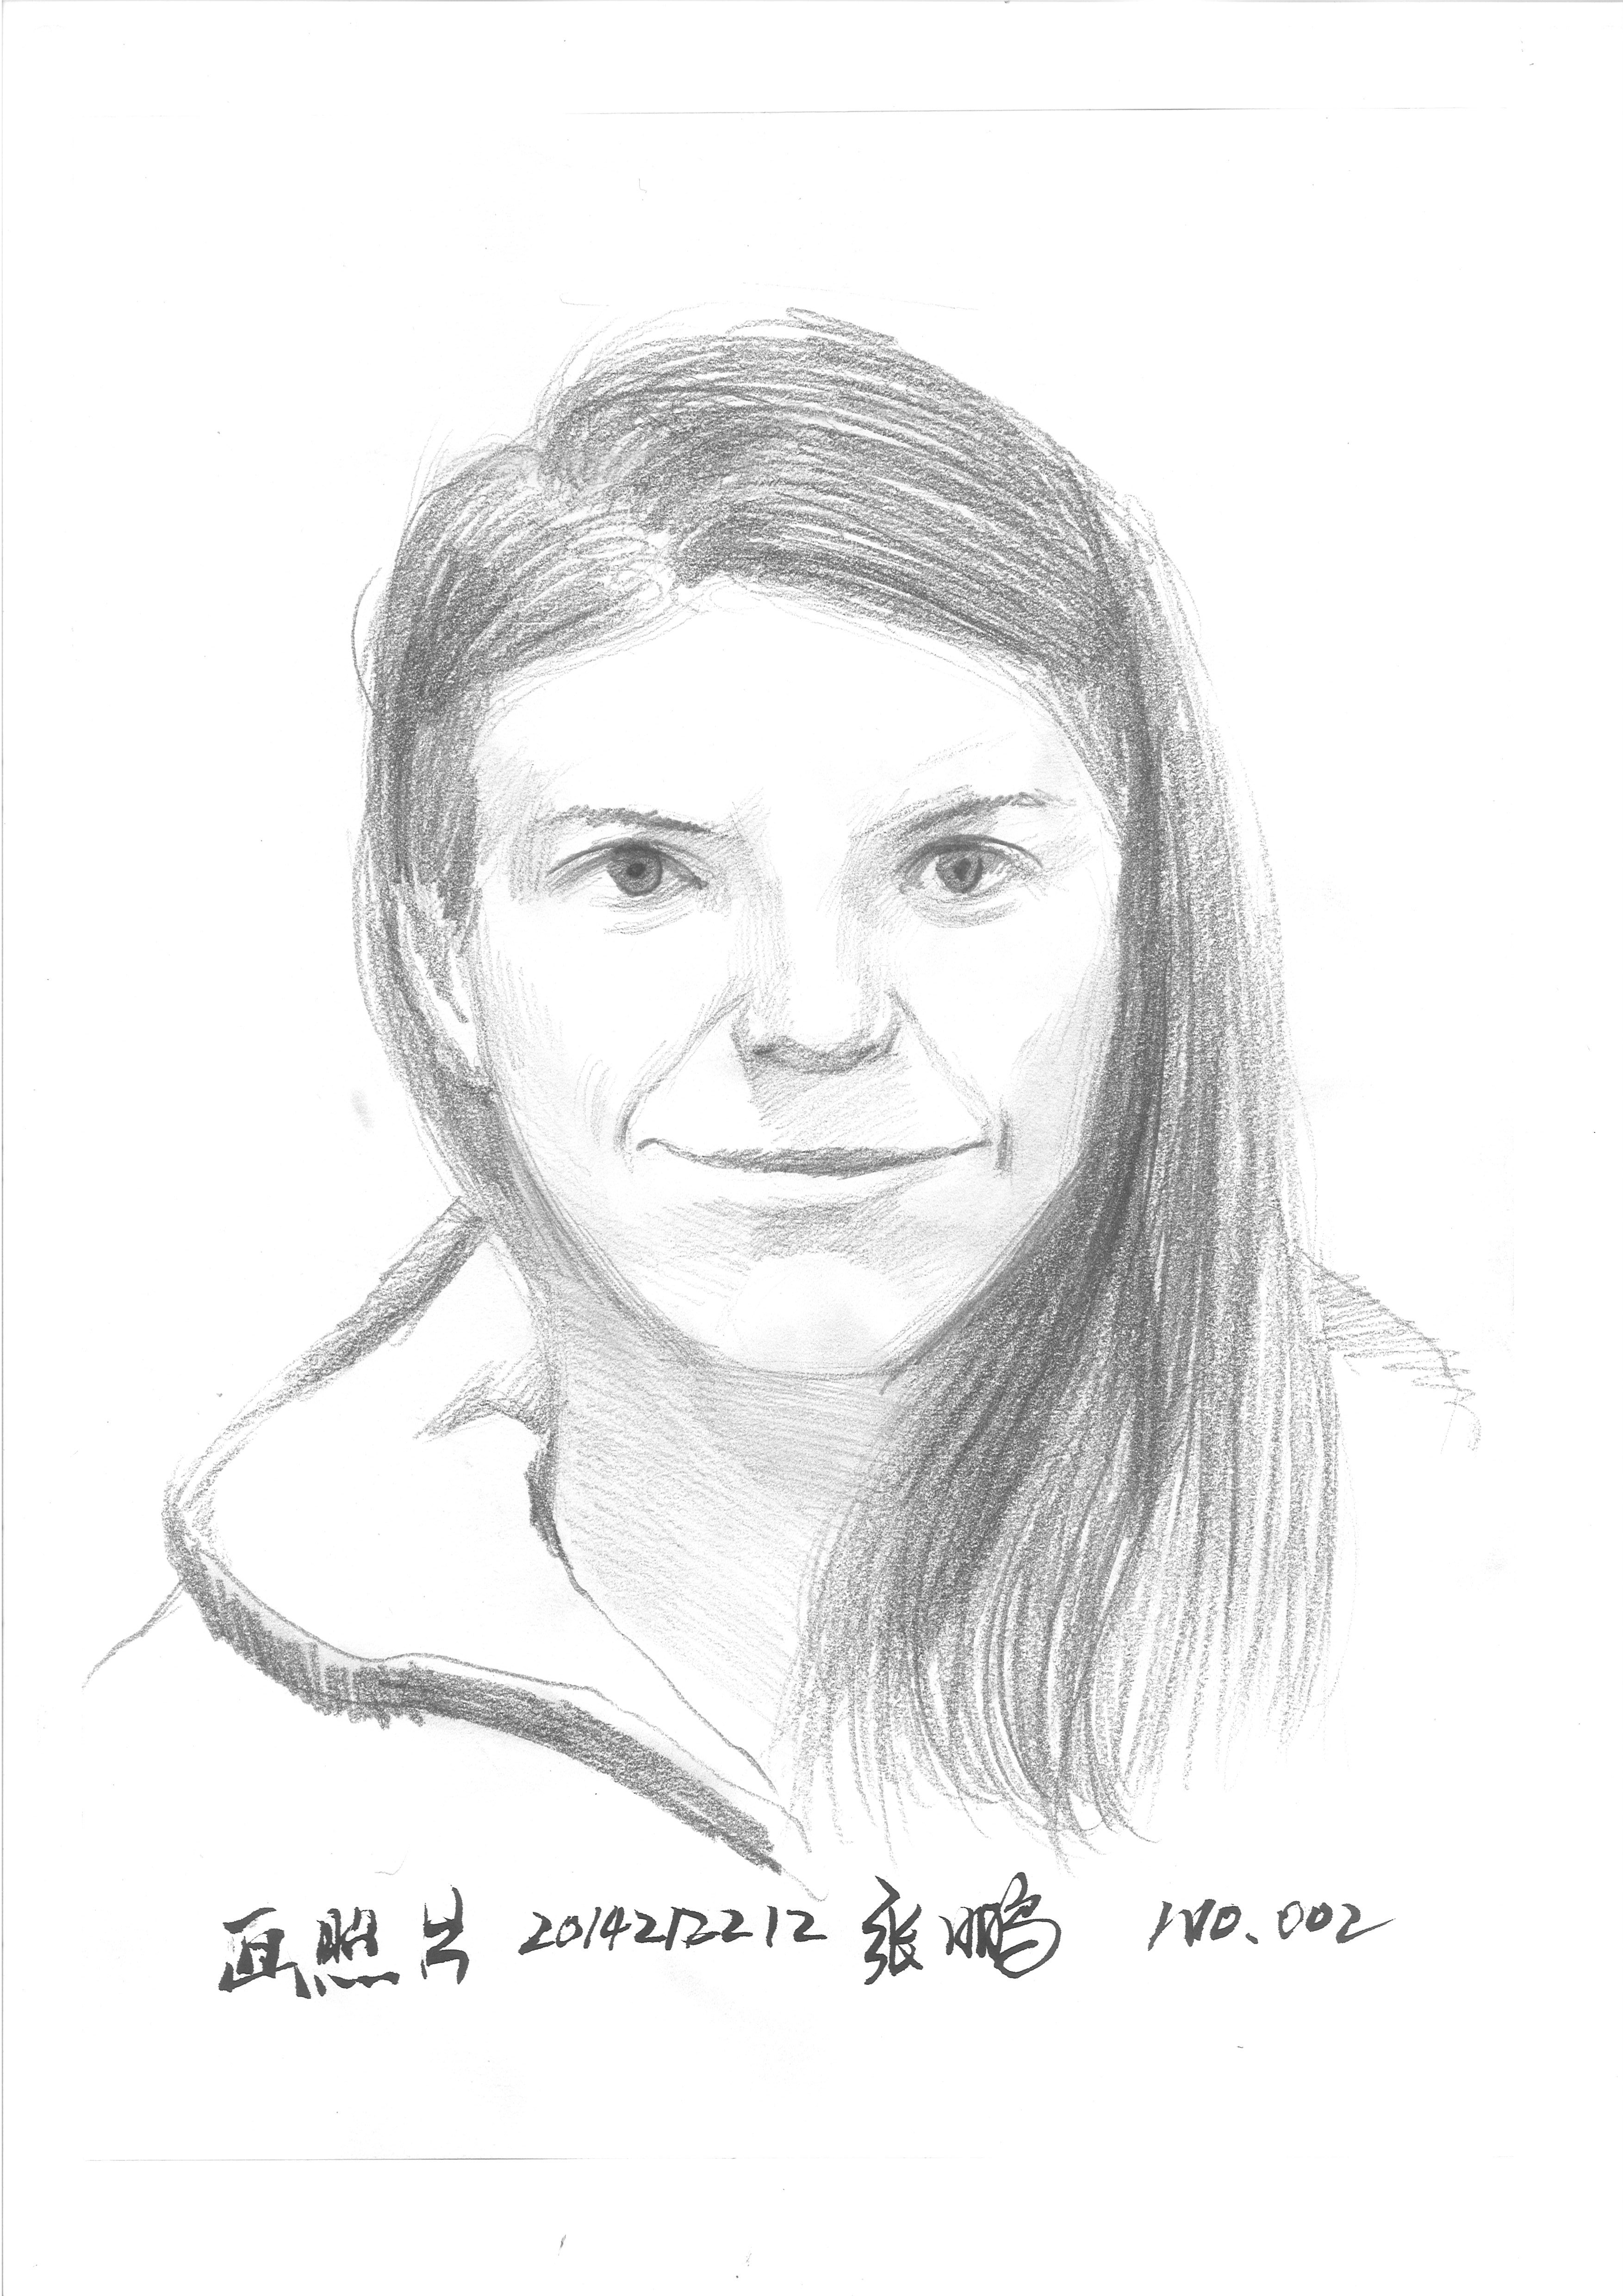 画照片 2014212212 张鹏 NO.002